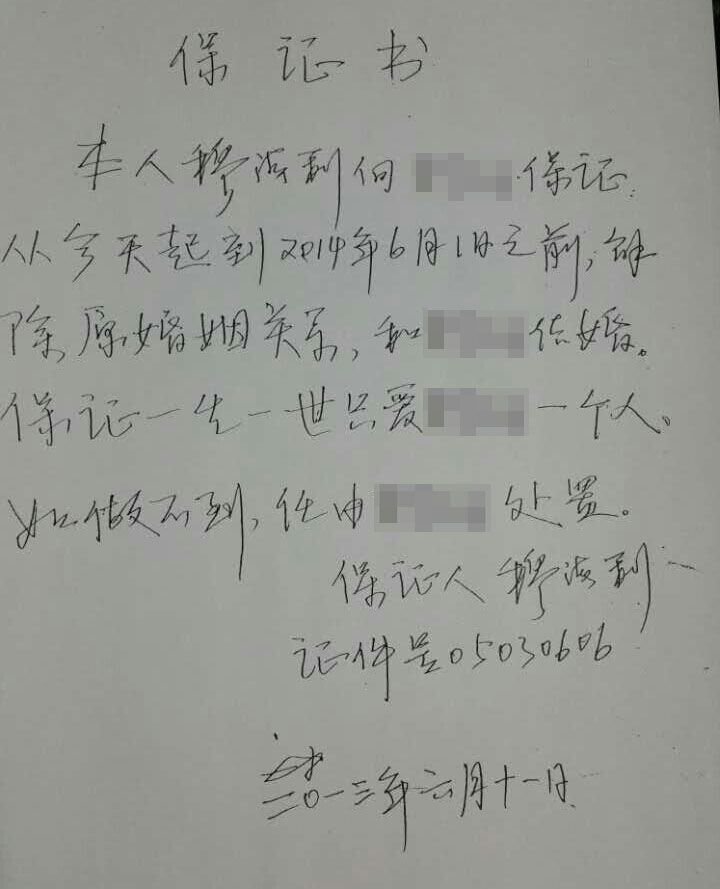 保证书
本人穆海利向 保证:
从今天起到2014年6月1日之前,解
除原婚姻关系,和 结婚。
保证一生一世只爱 一个人。
如做不到,任由 处置。
保证人 穆海利
证件号05030606
二0一三年六月十一日